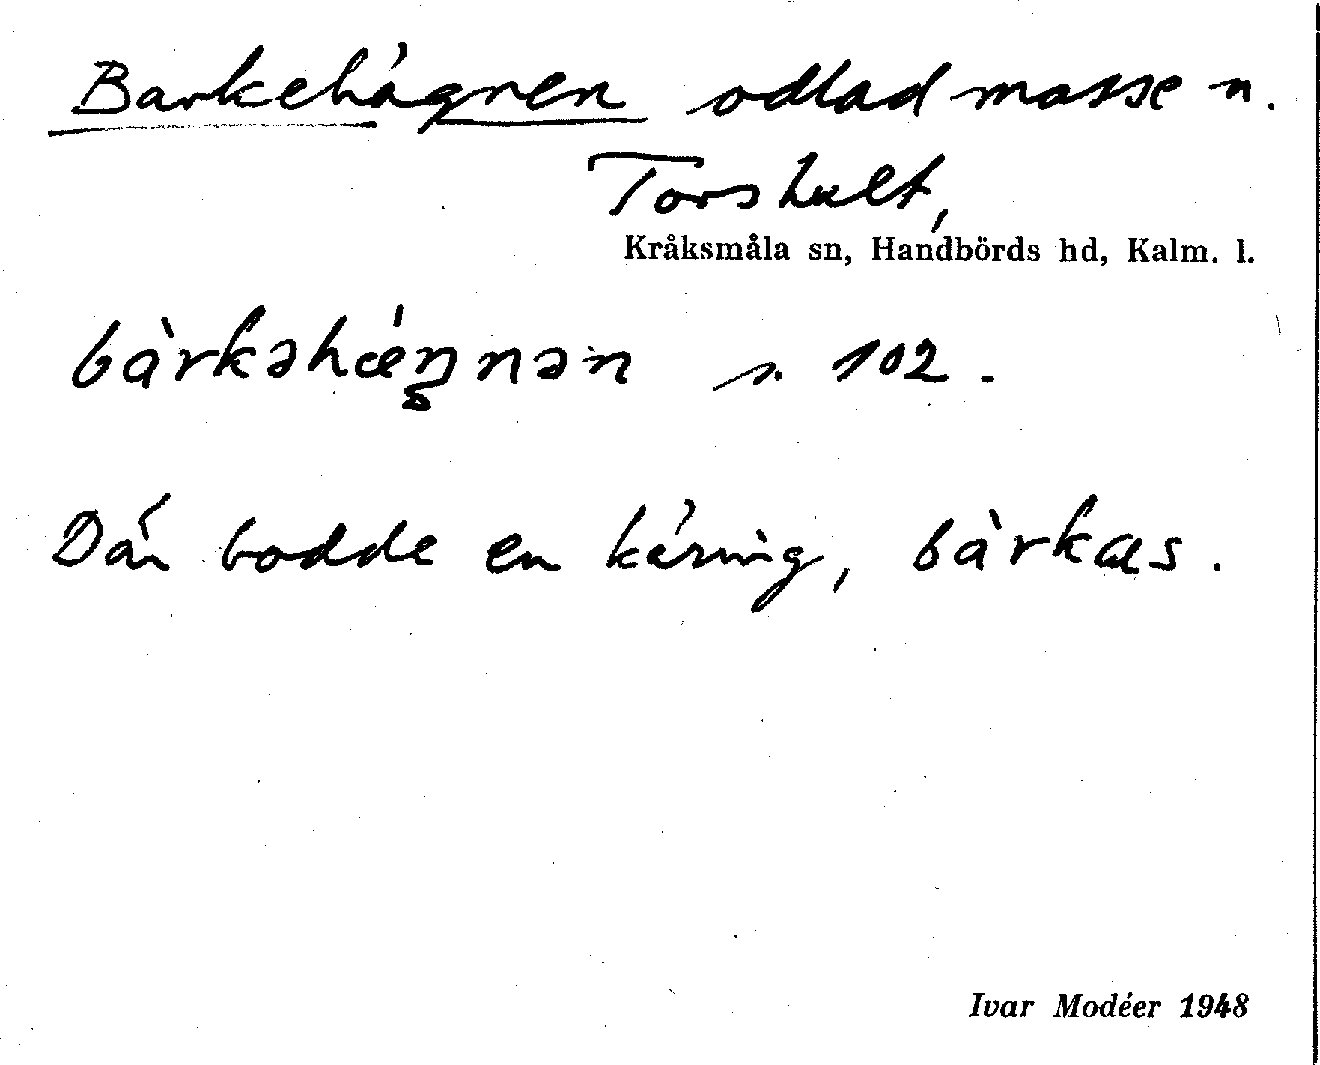 Barkehägnen odlad mosse n.
Torshult,
Kråksmåla sn, Handbörds hd, Kalm. l.
bàrkəhǽŋnən s. 102.
Där bodde en käring, bàrkas.
Ivar Modéer 1948